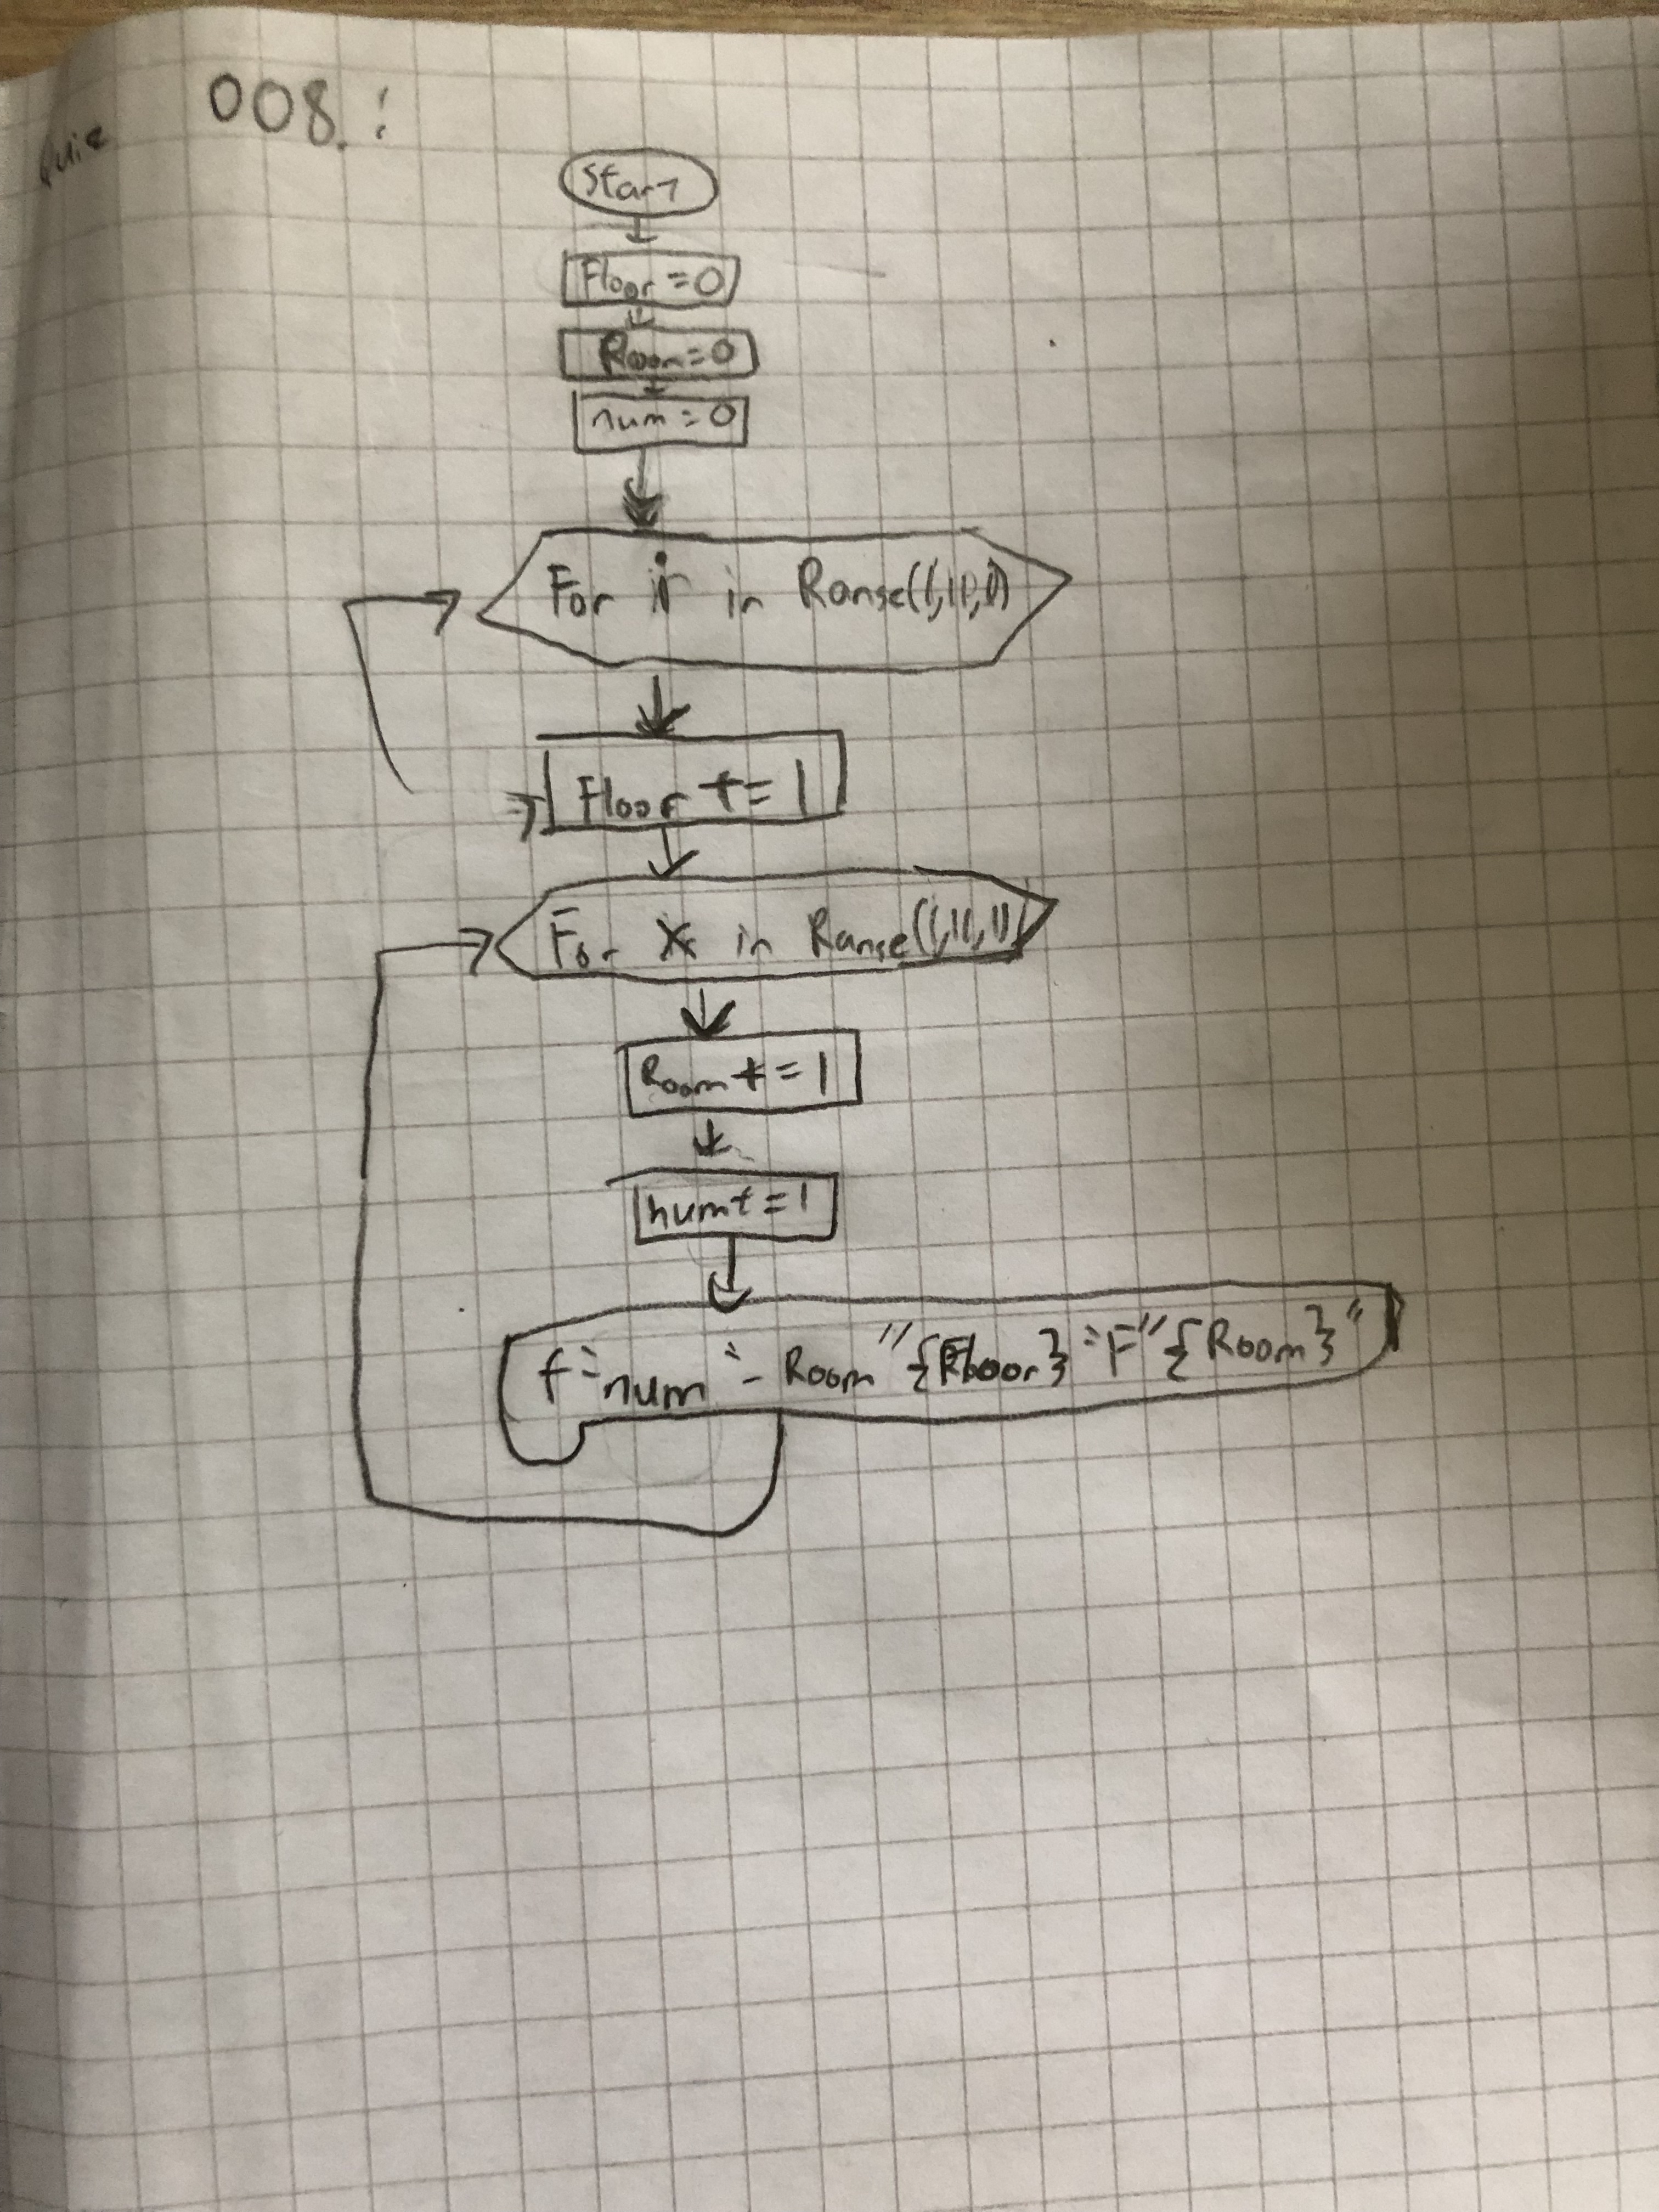 008.:
Quiz
Start
Floor = 0
Room = 0
num = 0
For i in Range(1,11,1)
Floor += 1
For x in Range(1,11,1)
Room += 1
num += 1
f "num" - Room "{Floor} "F"{Room}"